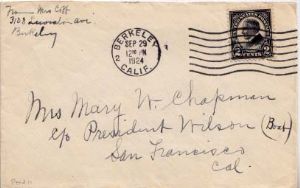 From Mrs Cliff
3108 Lincoln ave
Berkeley
BERKELEY
2
SEP 29
12 PM
1924
CALIF.
2 CENTS 2
Mrs Mary W. Chapman
c/o President Wilson (Boat)
San Francisco
Cal.